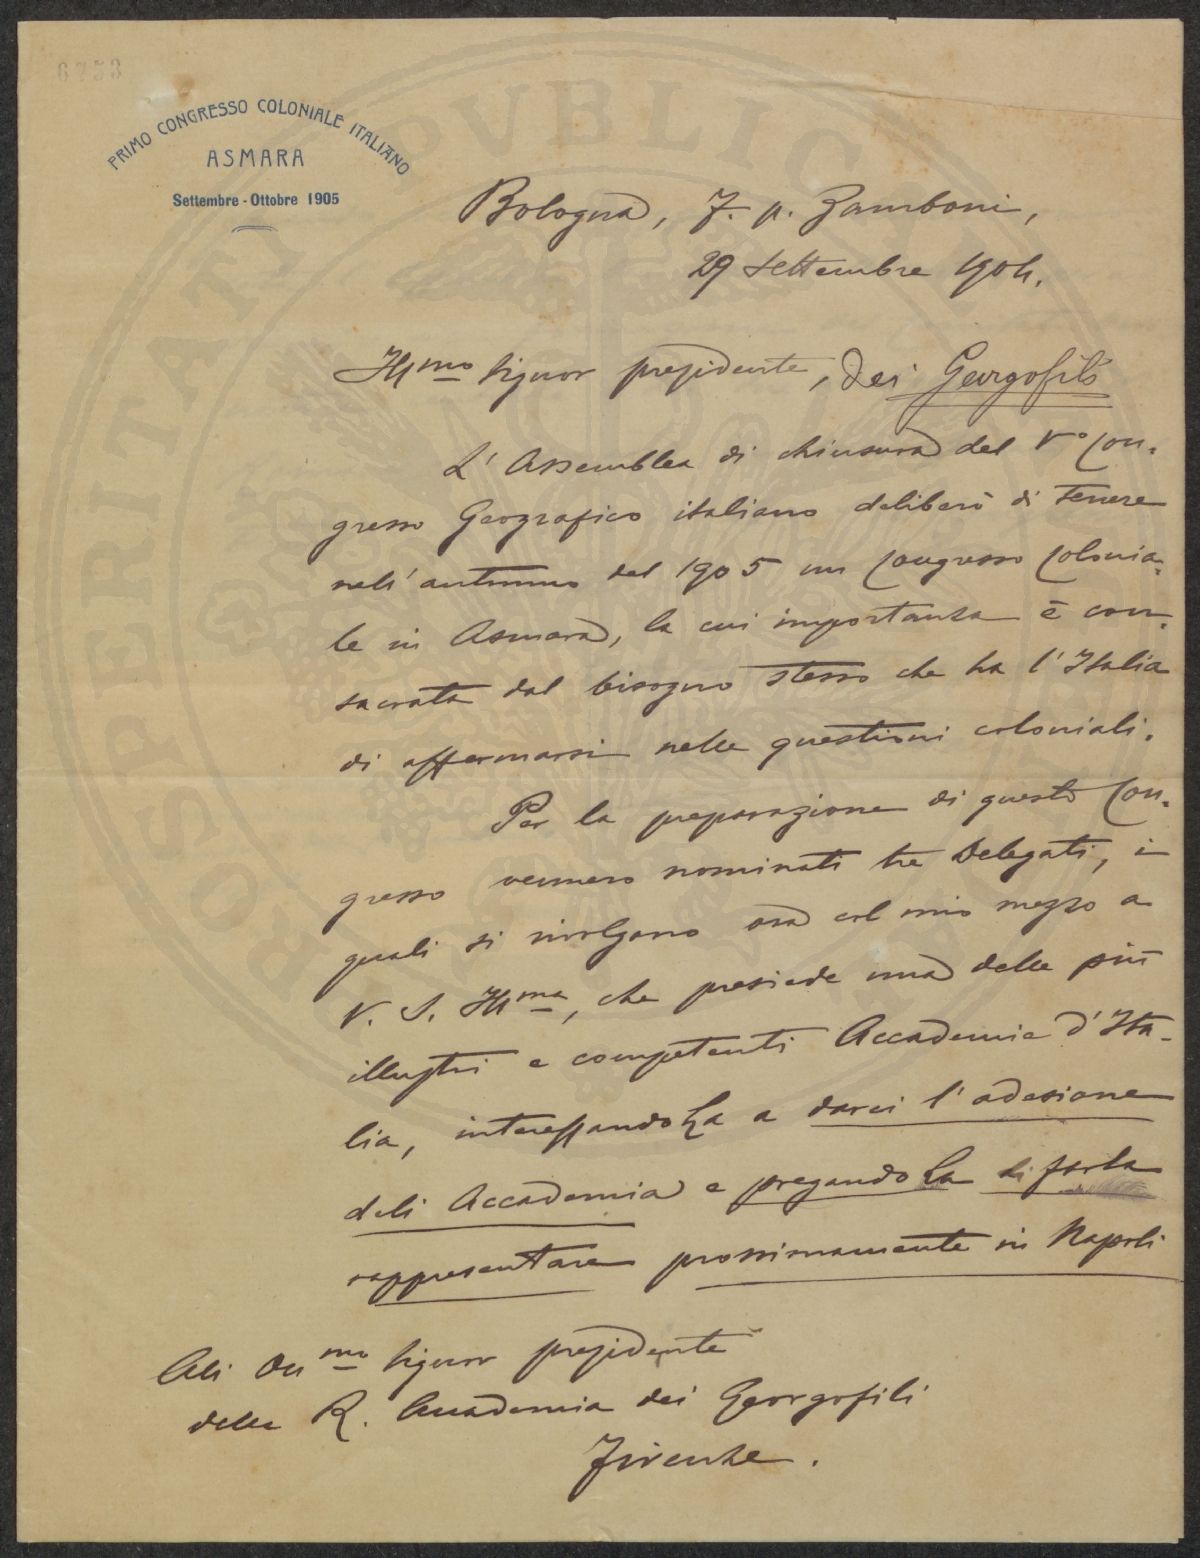 6753
PRIMO CONGRESSO COLONIALE ITALIANO
ASMARA
Settembre - Ottobre 1905
Bologna, F. p. Zamboni,
29 settembre 1904.
Illmo signor presidente, dei Georgofili
L'Assemblea di chiusura del V° Con-
gresso Geografico italiano deliberò di tenere
nell'autunno del 1905 un Congresso Colonia-
le in Asmara, la cui importanza è con-
sacrata dal bisogno stesso che ha l'Italia
di affermarsi nelle questioni coloniali.
Per la preparazione di questo Con-
gresso vennero nominati tre Delegati, i
quali si rivolgono ora col mio mezzo a
V. S. Illma, che presiede una delle più
illustri e competenti Accademie d'Ita-
lia, interessandoLa a darci l'adesione
dell'Accademia e pregandoLa di farla
rappresentare prossimamente in Napoli
All' On mo signor presidente
della R. Accademia dei Georgofili
Firenze.
PROSPERITATI PUBLICAE AUGENDAE